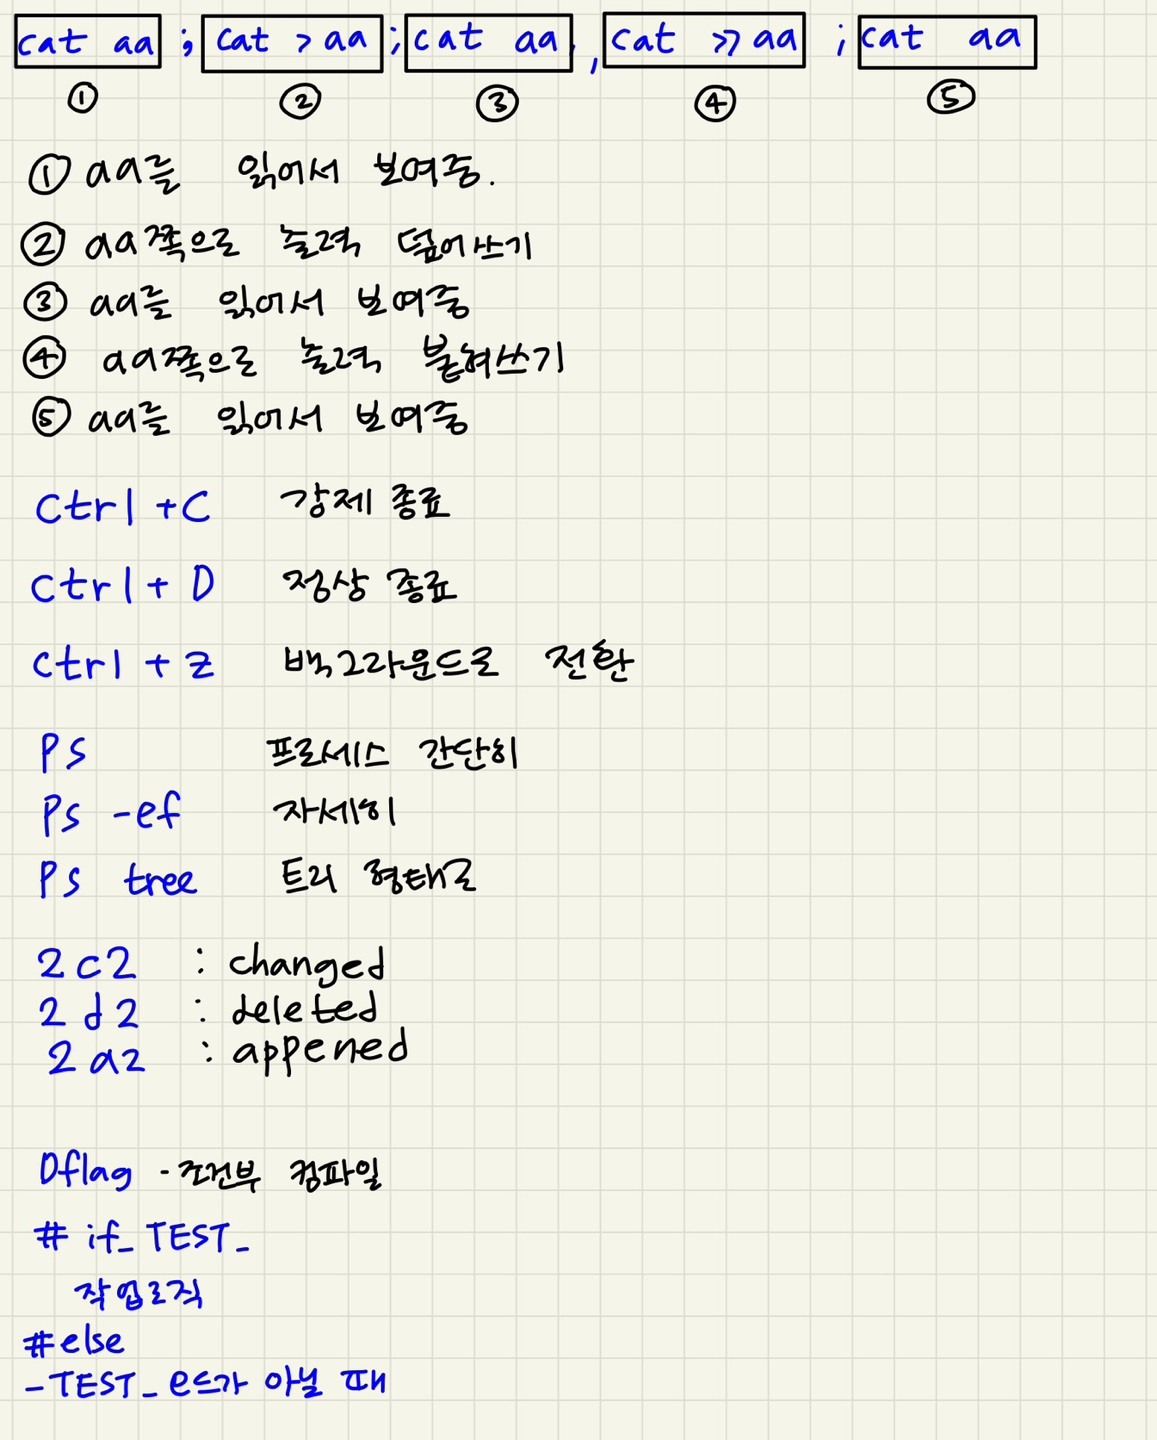 cat aa ; cat > aa ; cat aa , cat >> aa ; cat aa
① ② ③ ④ ⑤
① aa를 읽어서 보여줌.
② aa쪽으로 출력 덮어쓰기
③ aa를 읽어서 보여줌
④ aa쪽으로 출력 붙혀쓰기
⑤ aa를 읽어서 보여줌
Ctrl +C 강제 종료
Ctrl + D 정상 종료
Ctrl + z 백그라운드로 전환
PS 프로세스 간단히
Ps -ef 자세히
PS tree 트리 형태로
2c2 : changed
2 d 2 : deleted
2 a2 : appened
Dflag - 조건부 컴파일
# if_ TEST_
작업로직
#else
-TEST_ 모드가 아닐 때